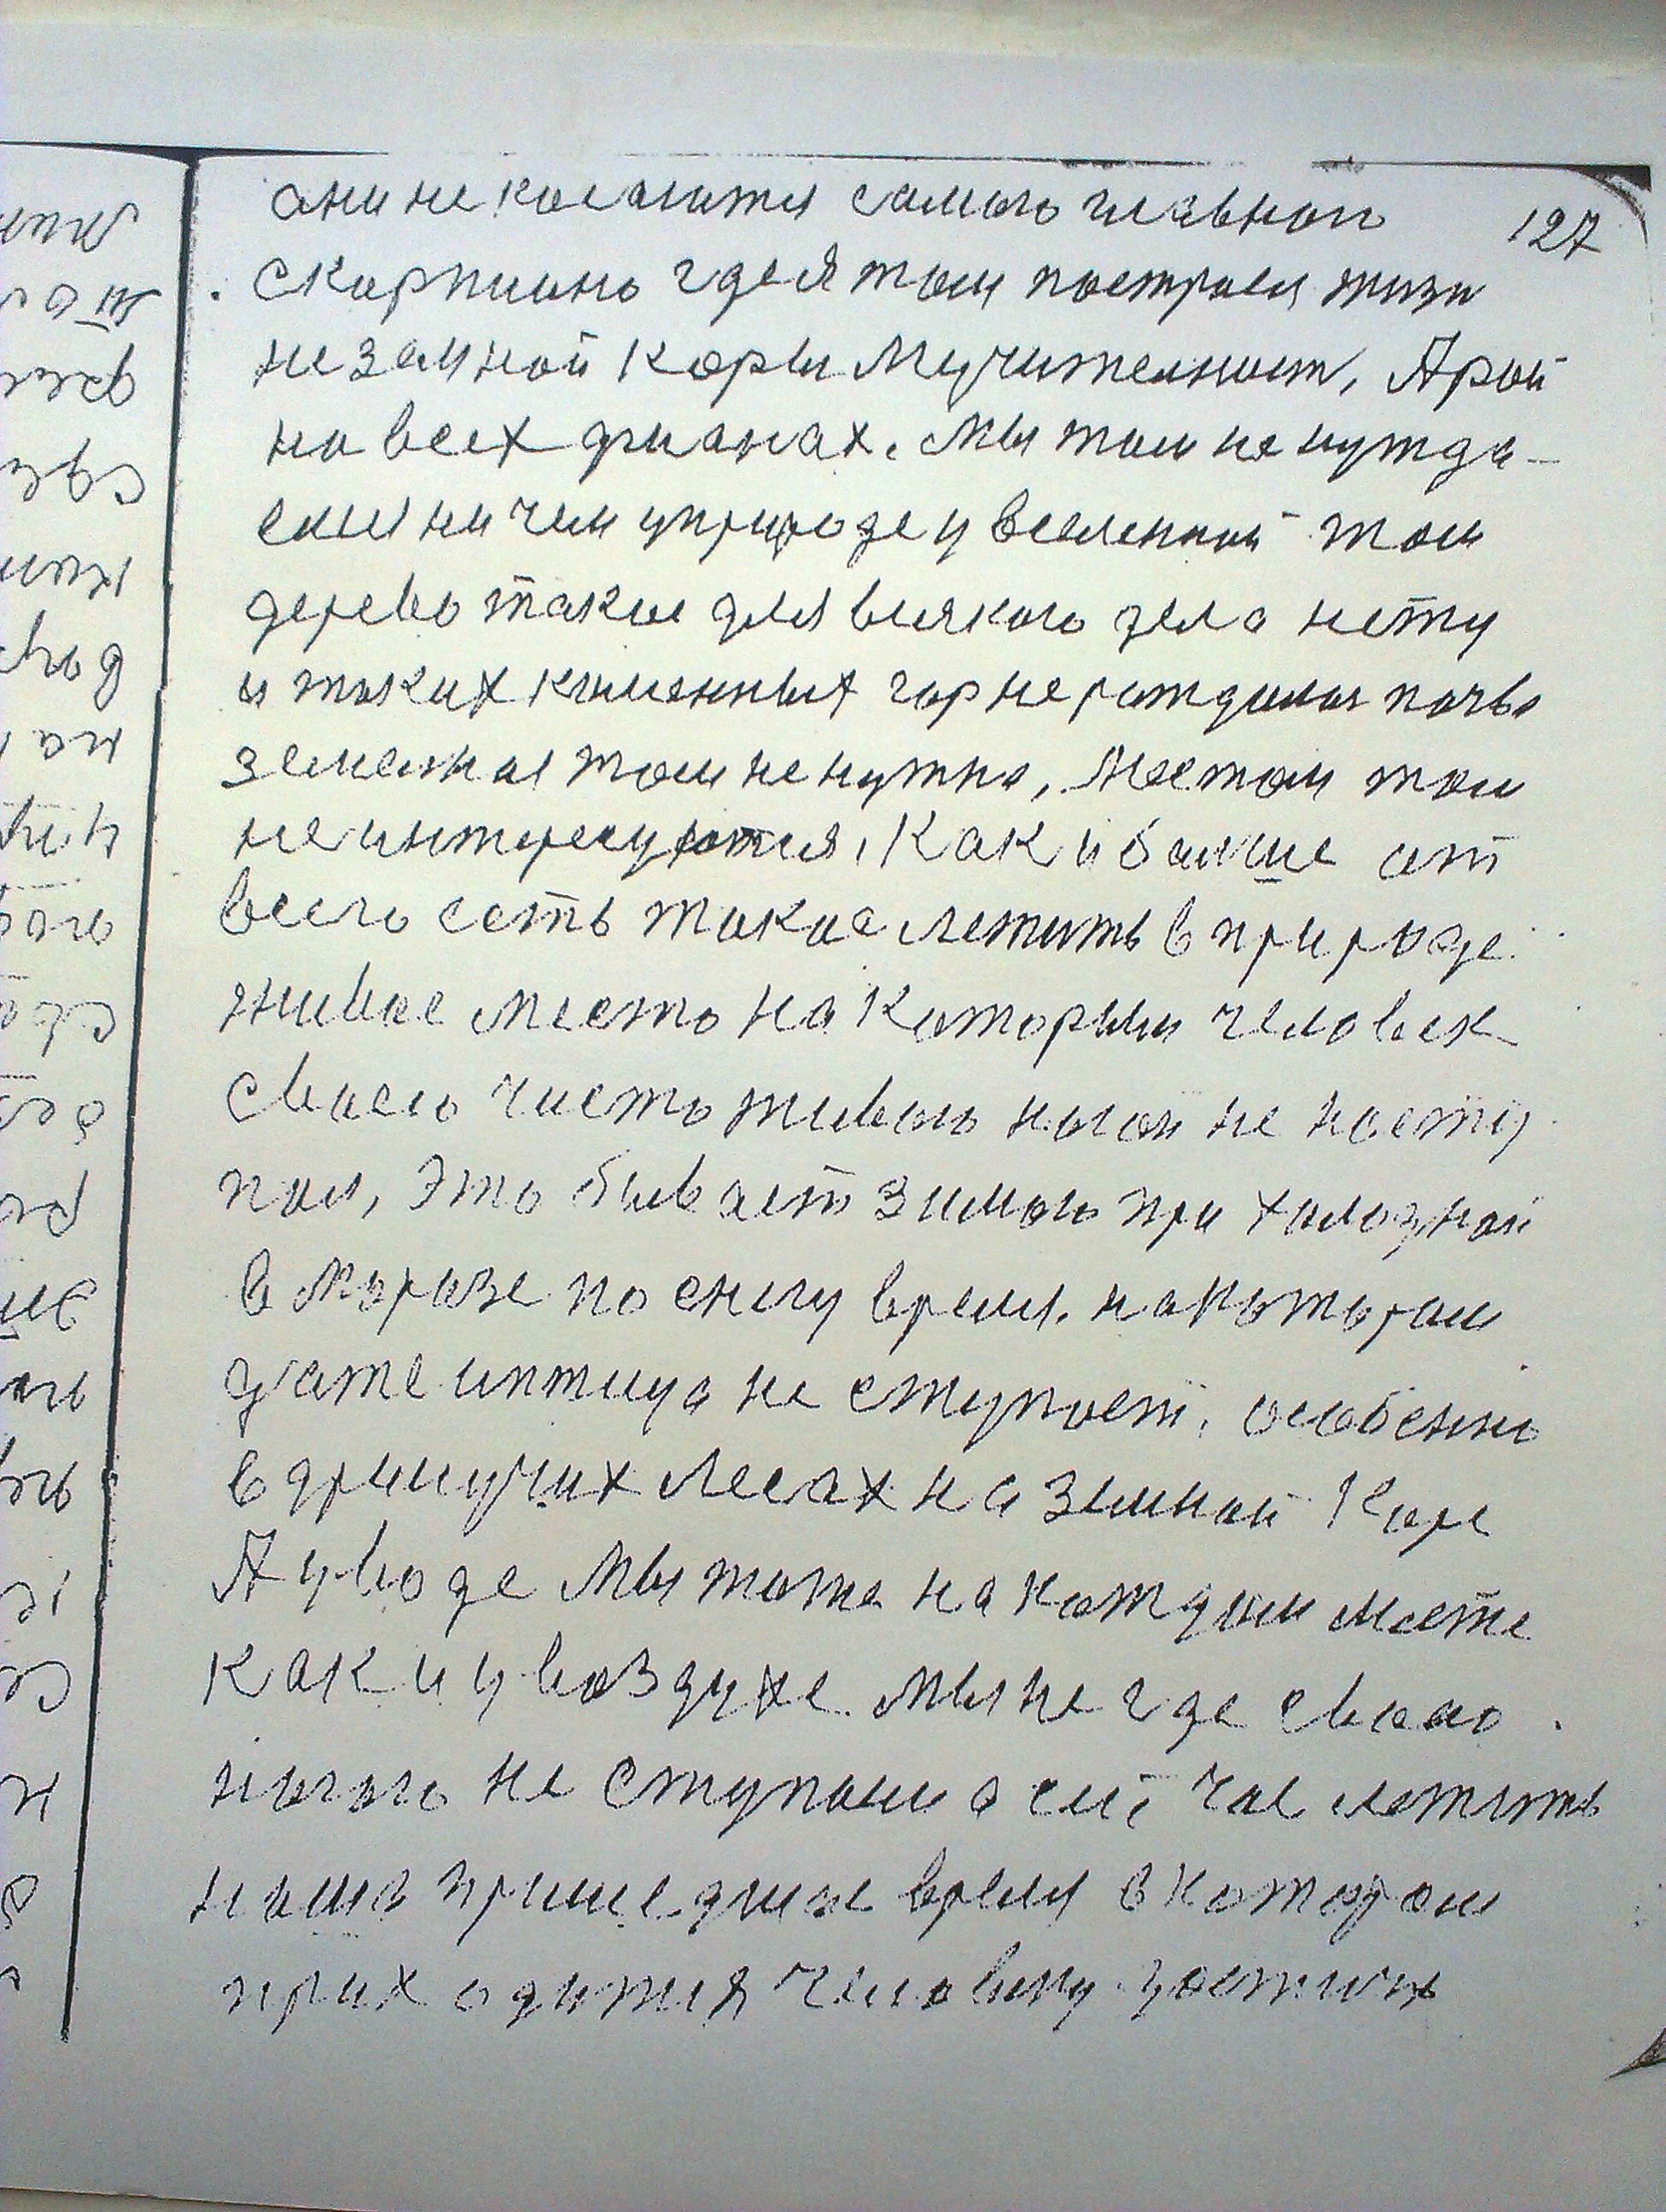 127
они не косаются самого главного
скорпионо где я там построел жизн
не земной коры мучителност, А рай
на всех фронах. мы там не нужда-
емся ни чем у природе у вселенной там
дерево такое для всякого дела нету
и таких каменных гор не рождилось почва
земельная там не нужна, местом там
не интересуются, как и болше от
всего есть такое летить в природе
живое место на которым человек
своего чисто живого ногой не насту
пал, это бывает зимою при холодной
в морозе по снегу время. на котором
даже и птица не ступает, особенно
в дримучих лесах на земной коре
А у воде мы тоже на каждым месте
как и у воздухе. мы не где свою
ногою не ступаим а ей час летить
наша пришедшее время в котором
приходится человеку достичь